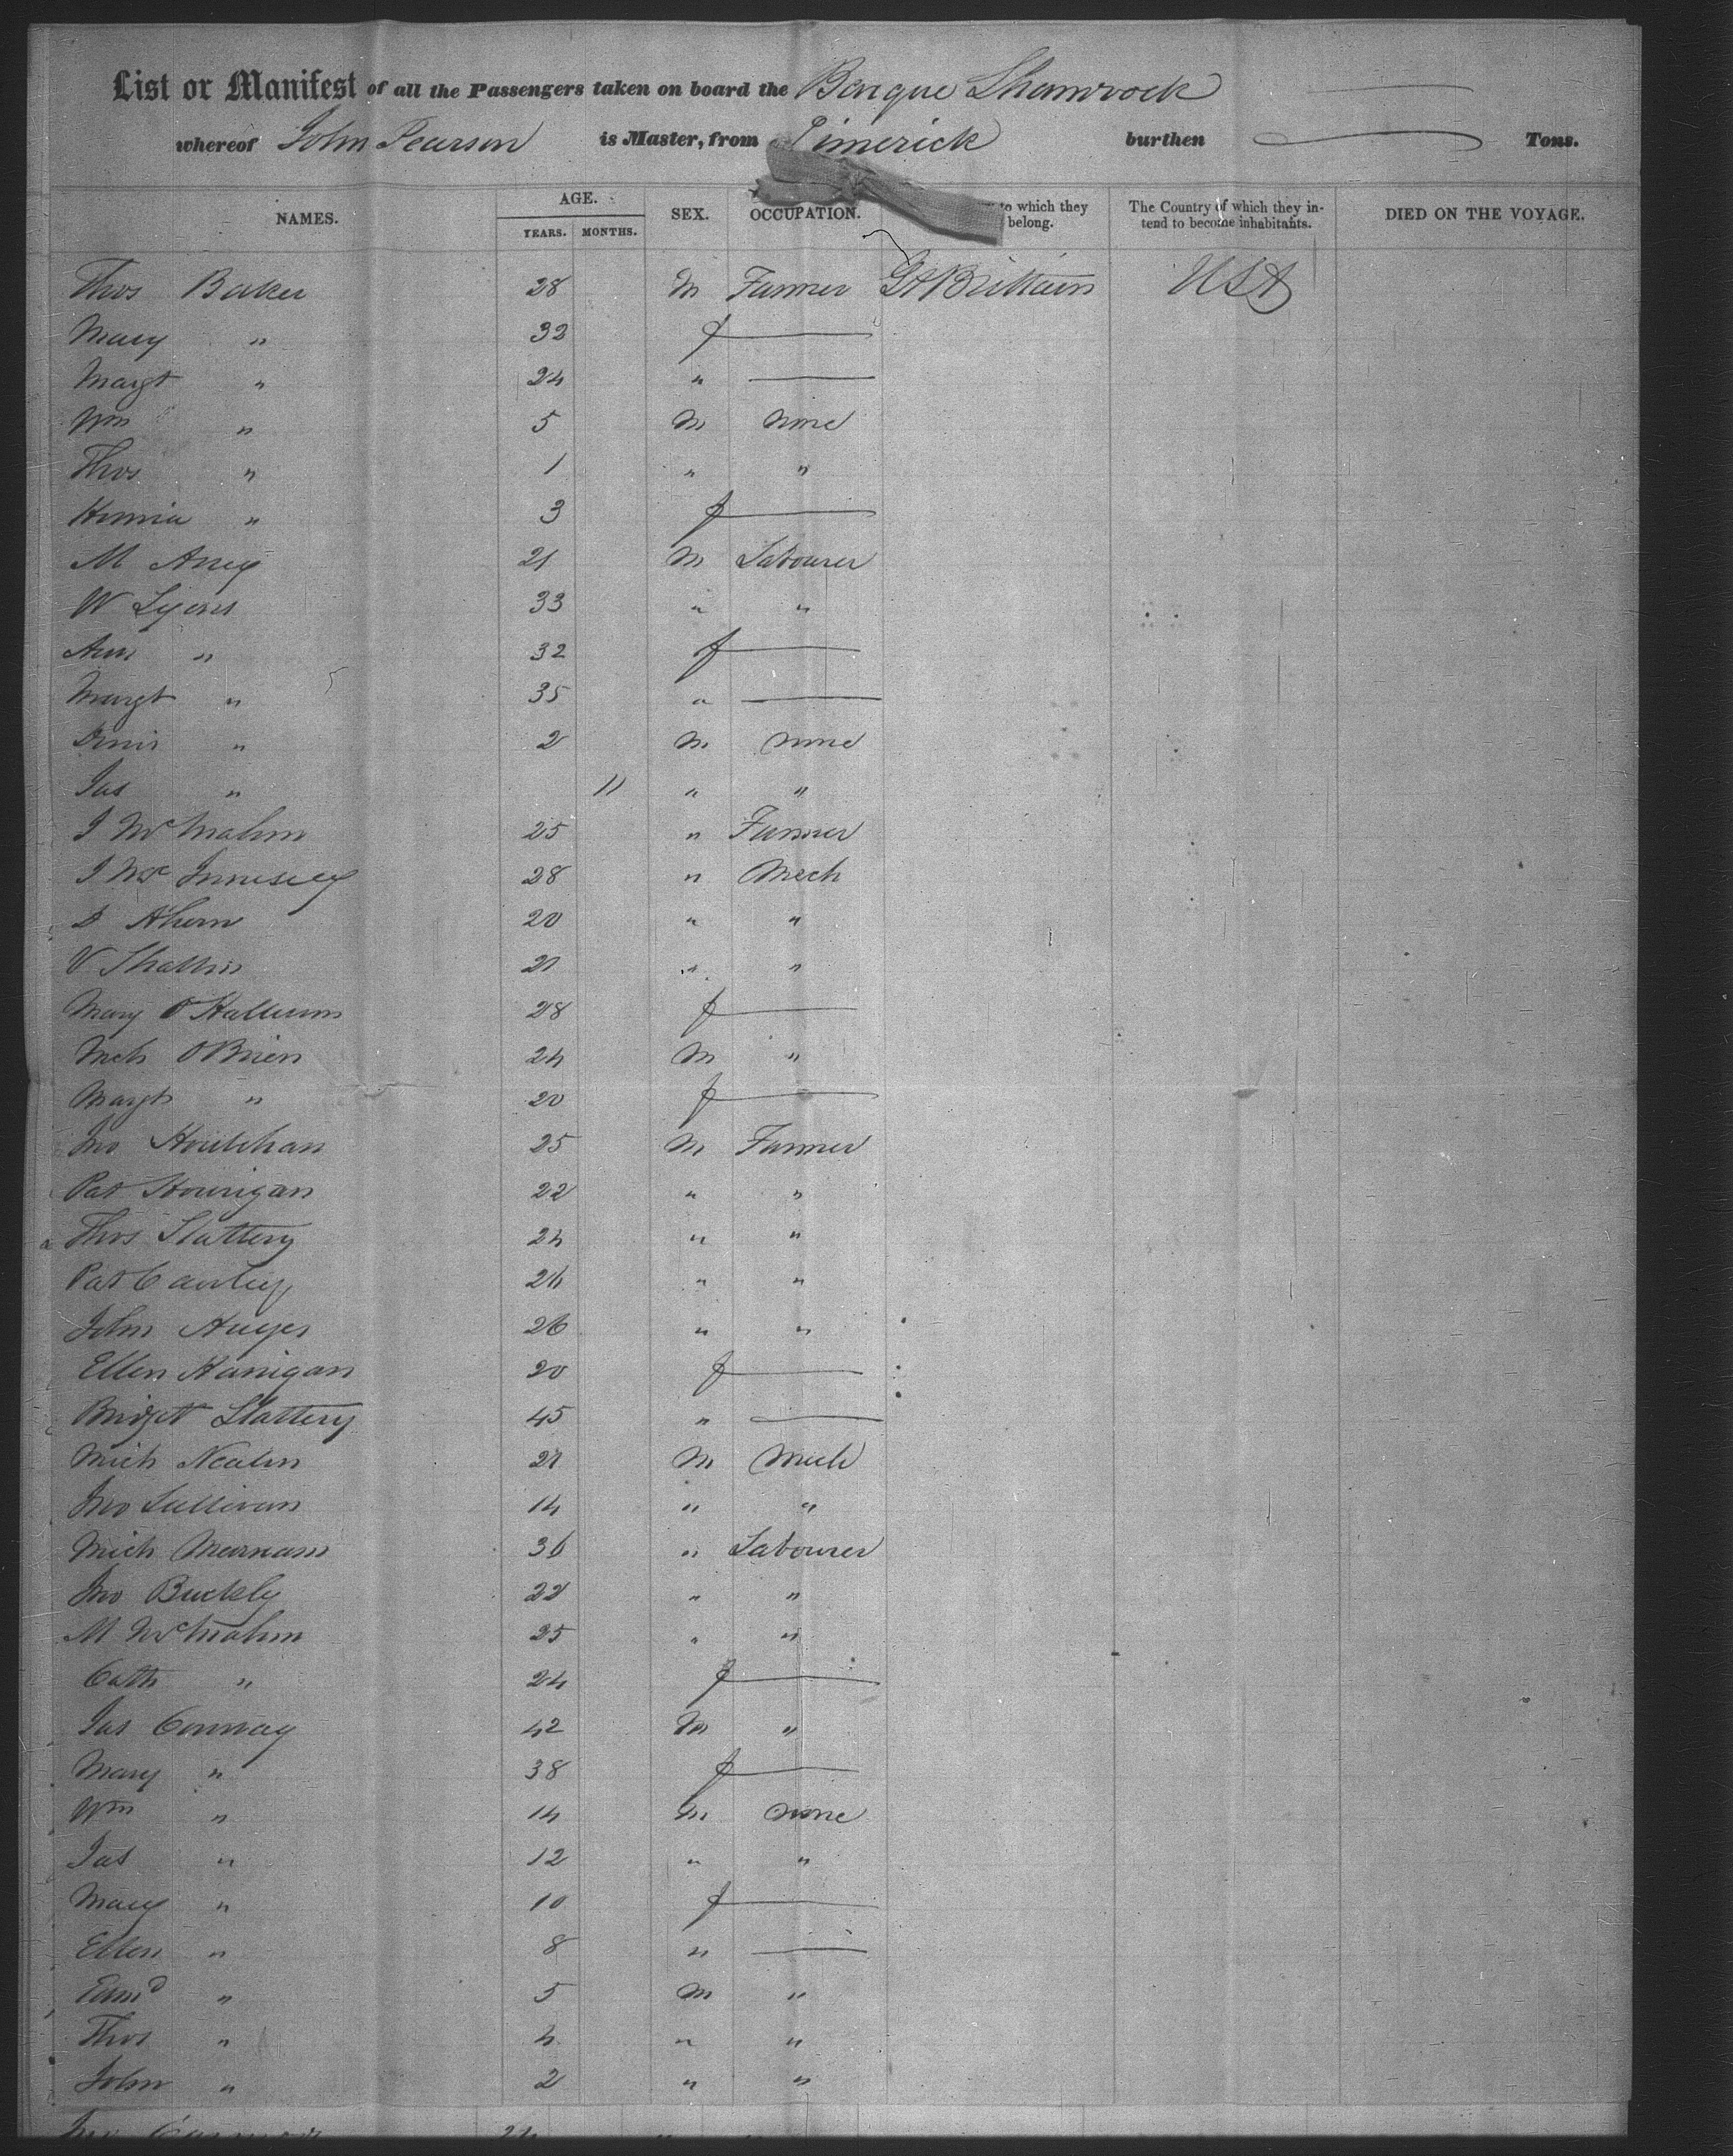 List or Manifest of all the Passengers taken on board the Barque Shamrock
whereof John Pearson is Master, from Limerick burthen Tons.
NAMES. AGE. YEARS. MONTHS. SEX. OCCUPATION. to which they belong. The Country of which they intend to become inhabitants. DIED ON THE VOYAGE.
Thos Baker 28 M Farmer Gt Brittain USA
Mary " 32 f
Margt " 24 "
Wm " 5 M none
Thos " 1 " "
" 3 f
M 21 M Labourer
W Lyons 33 " "
Ann " 32 f
Margt " 35 "
Denis " 2 M none
Jas " 11 " "
J McMahon 25 " Farmer
J Mc 28 " Mech
D Ahern 20 " "
21 " "
Mary O'Halloran 28 f
Mich OBrien 24 M "
Margt " 20 f
Jno Houlihan 25 M Farmer
Pat Hourigan 22 " "
Thos Slattery 24 " "
Pat 24 " "
John Hayes 26 " "
Ellen Hanigan 20 f
Bridget Slattery 45 "
Mich Nealon 21 M Mech
Jno Sullivan 14 " "
Mich 36 " Labourer
Jno Buckly 22 " "
M McMahon 25 " "
Cath " 24 f
Jas Conway 42 M "
Mary " 38 f
Wm " 14 M none
Jas " 12 " "
Mary " 10 f
Ellen " 8 "
Edmd " 5 M "
Thos " 4 " "
John " 2 " "